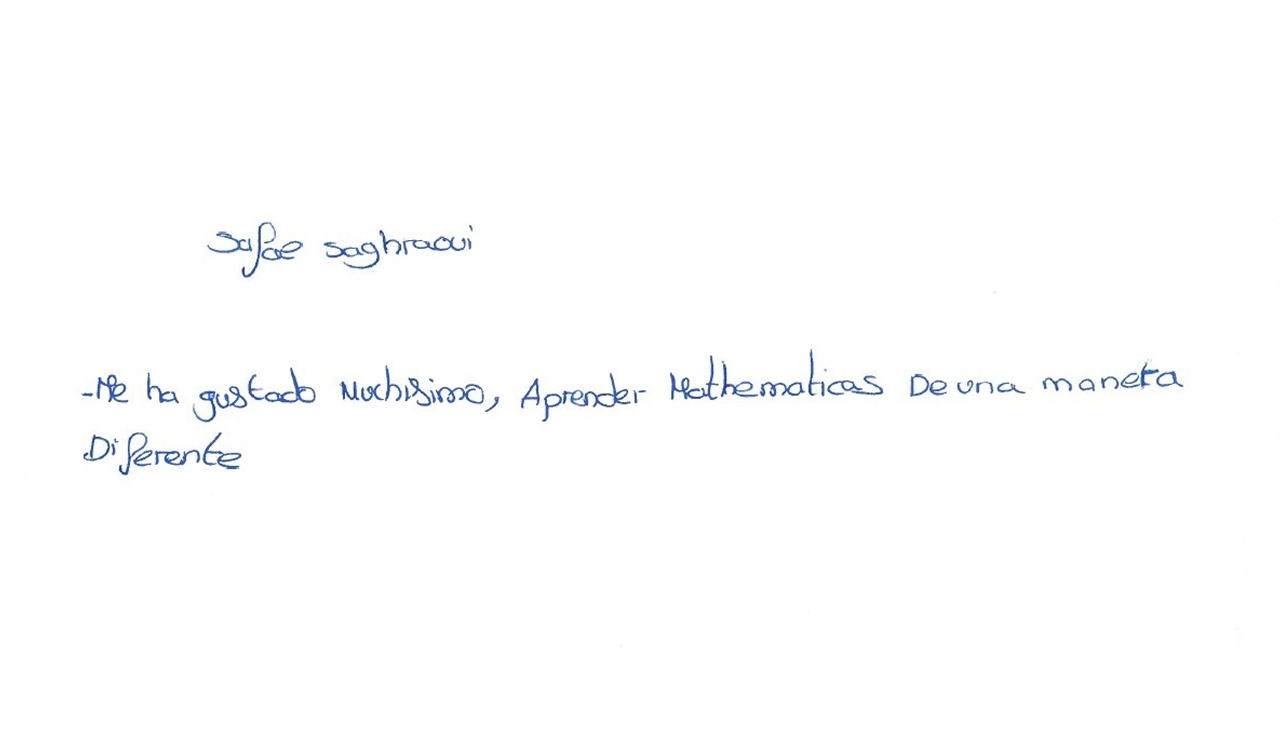 Safae saghraoui
-Me ha gustado Muchisimo, Aprender Mathematicas De una manera
Diferente